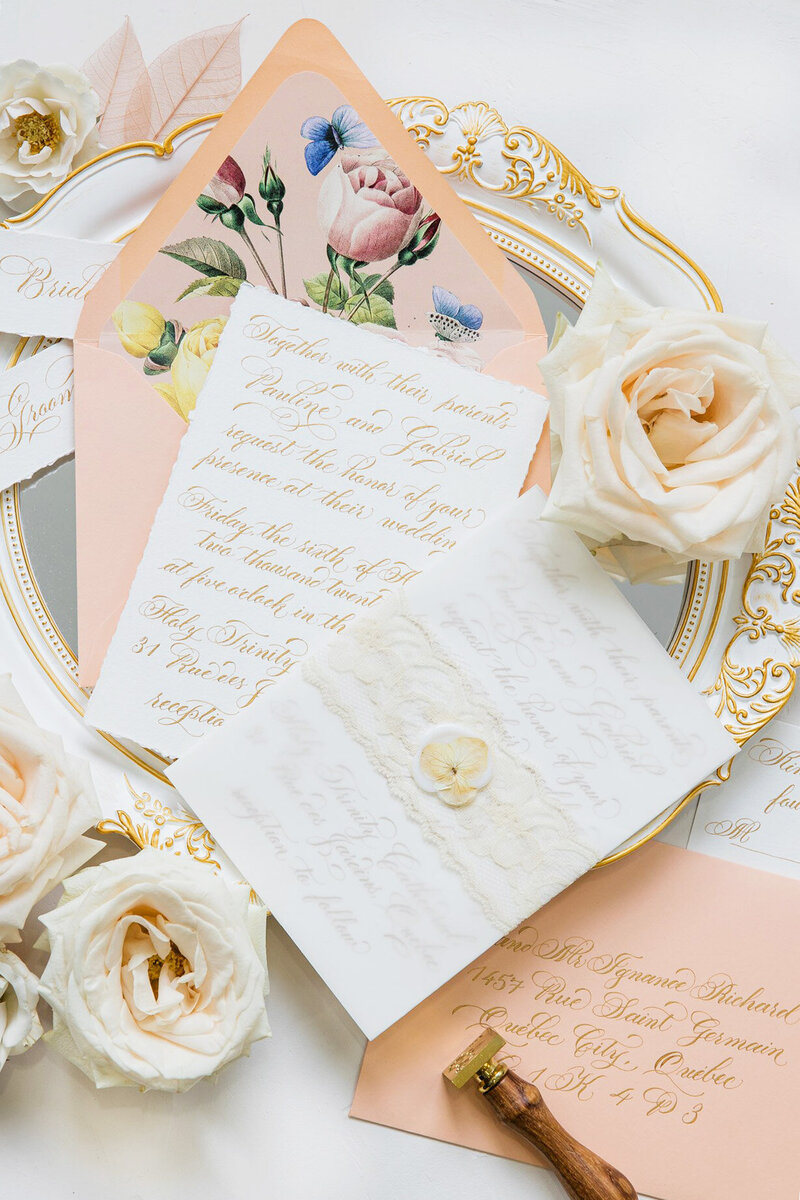 Brid
Groom
Together with their parents
Pauline and Gabriel
request the honor of your
presence at their weddin
Friday the sixth of
two thousand twent
at five o'clock in th
Holy Trinity
31 Rue des J
receptio
with their parents
and Gabriel
request the honor of your
Holy Trinity Cathedral
31 Rue des Jardins, Québec
reception to follow
Kin
fou
M
and Mr Ignance Richard
1457 Rue Saint Germain
Québec City, Québec
1K 4P3